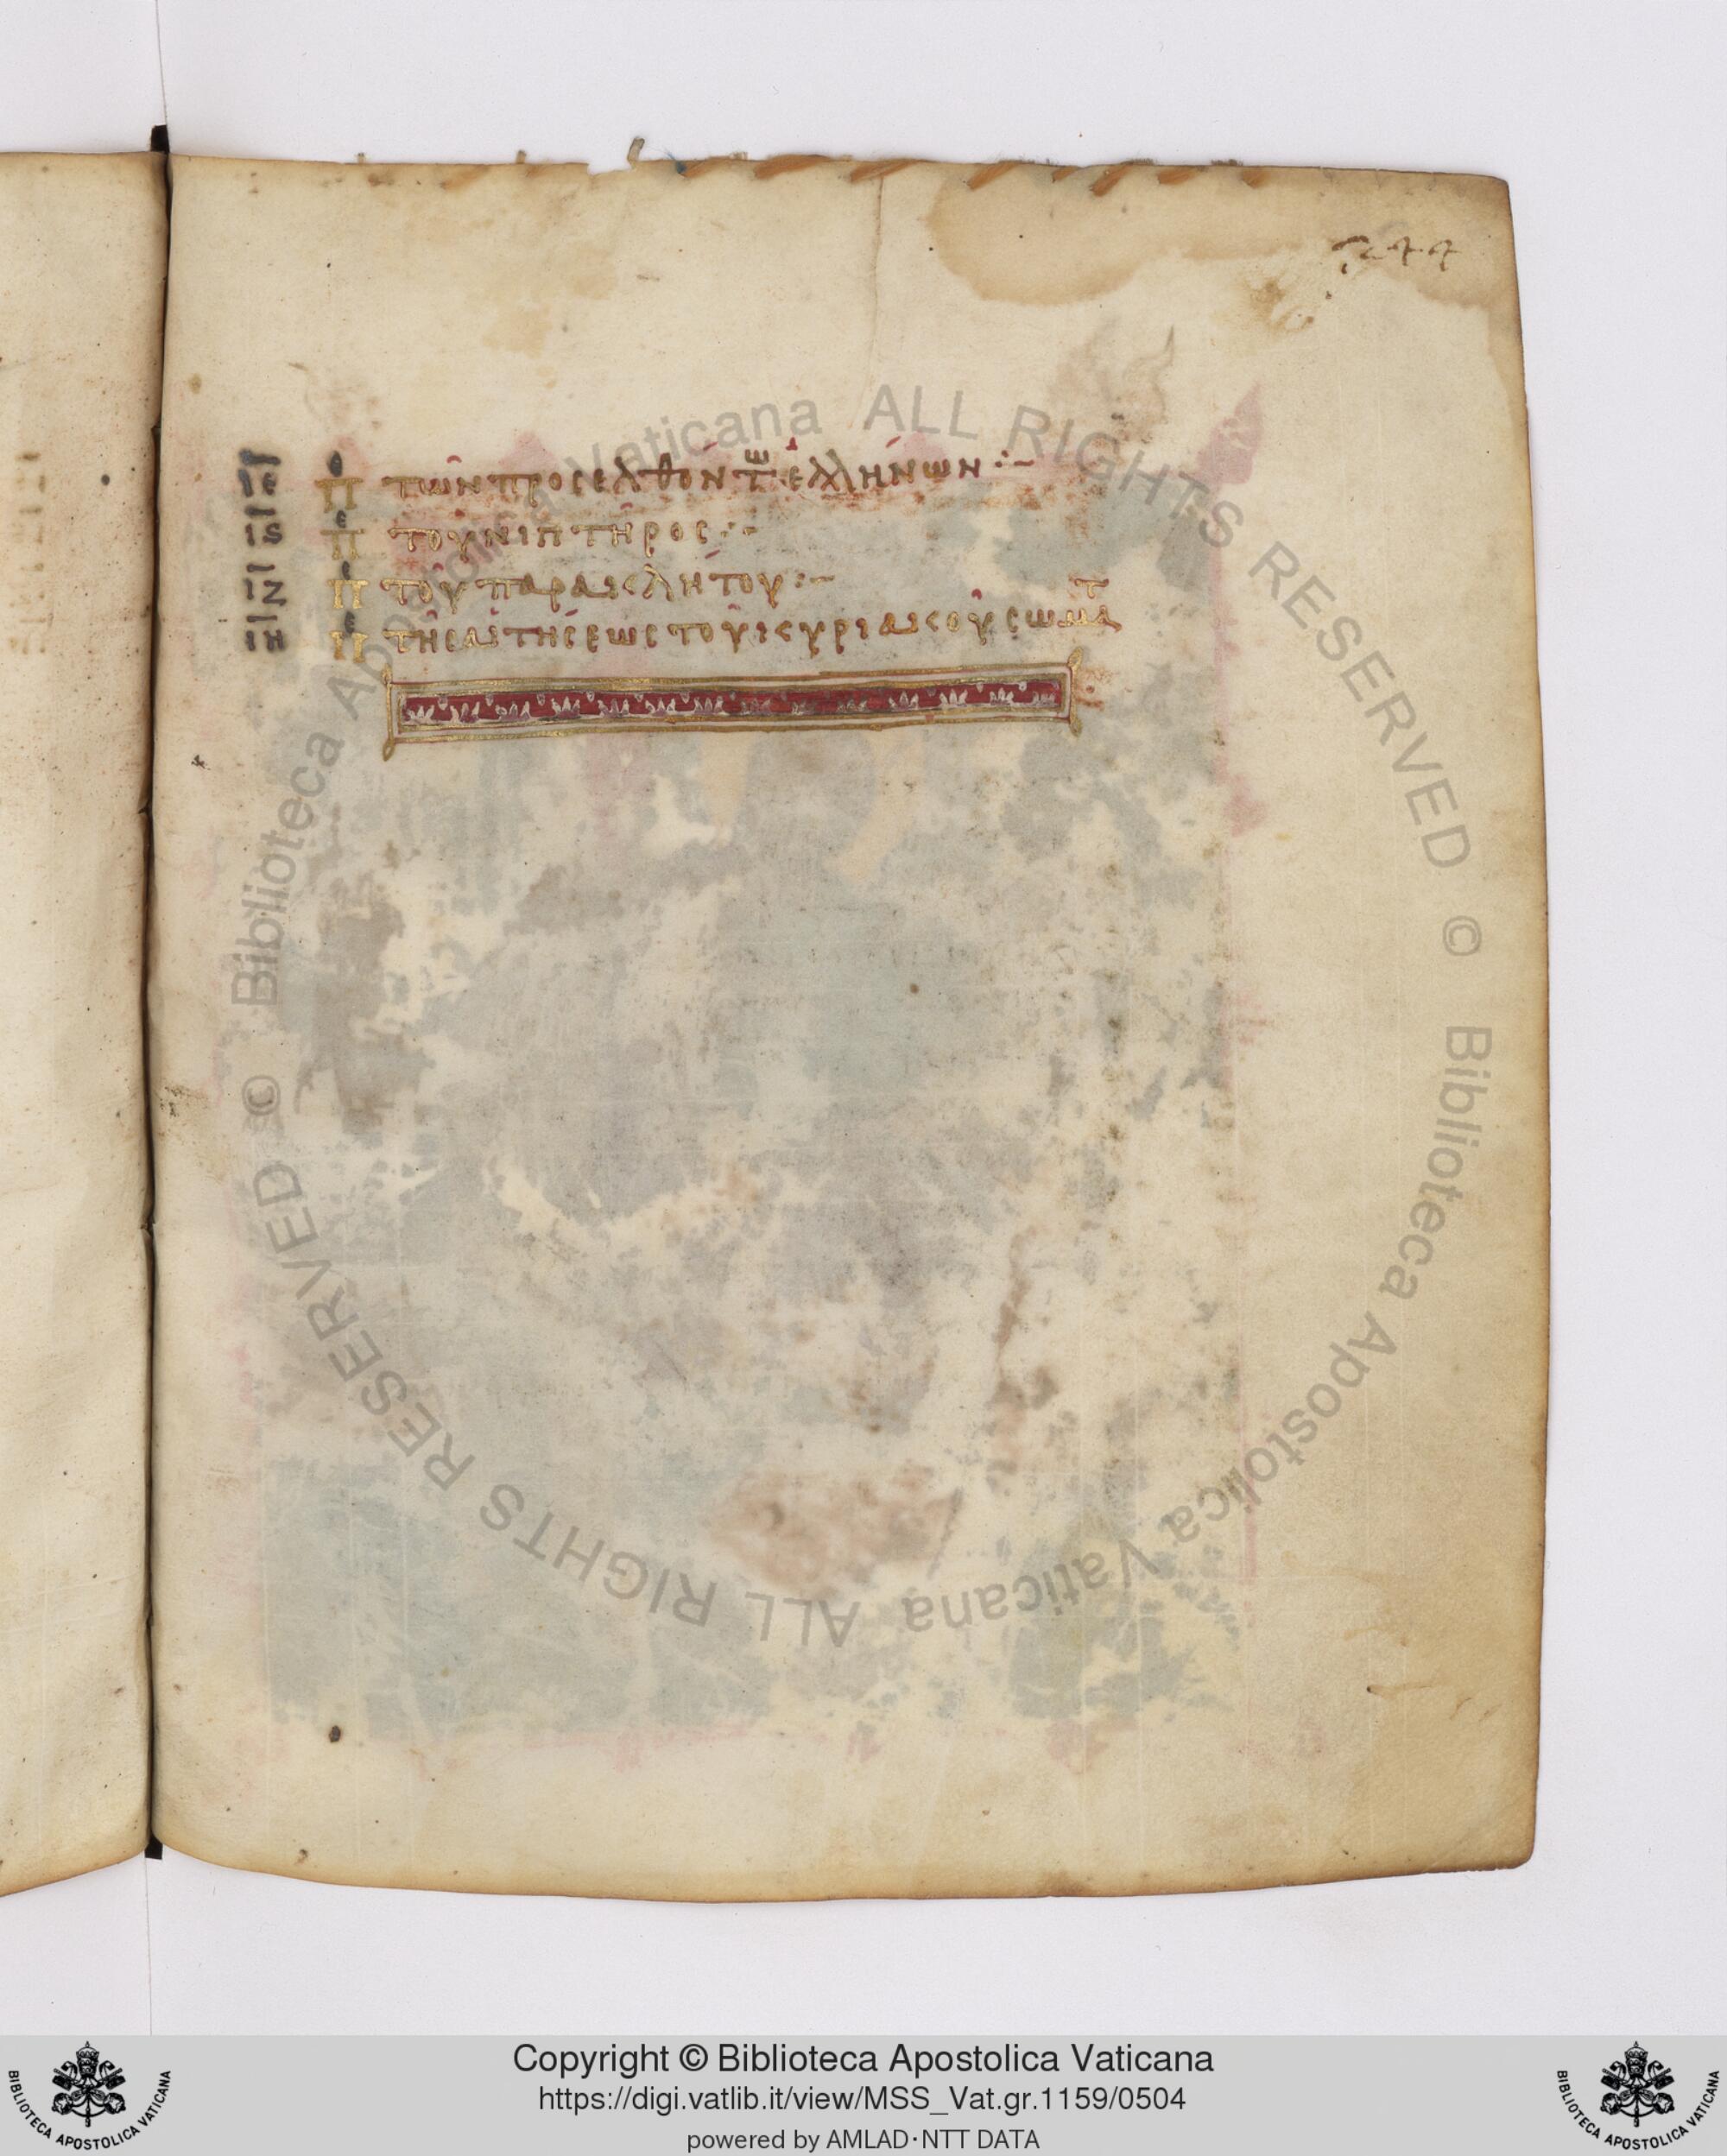 244
ιε πε τῶν προσελθόντων ἑλλήνων :-
ις πε τοῦ νιπτῆρος :-
ιζ πε τοῦ παρακλήτου :-
ιη πε τῆς αἰτήσεως τοῦ κυριακοῦ σώματ
© Biblioteca Apostolica Vaticana ALL RIGHTS RESERVED © Biblioteca Apostolica Vaticana ALL RIGHTS RESERVED
Copyright © Biblioteca Apostolica Vaticana
https://digi.vatlib.it/view/MSS_Vat.gr.1159/0504
powered by AMLAD·NTT DATA
BIBLIOTECA APOSTOLICA VATICANA
BIBLIOTECA APOSTOLICA VATICANA